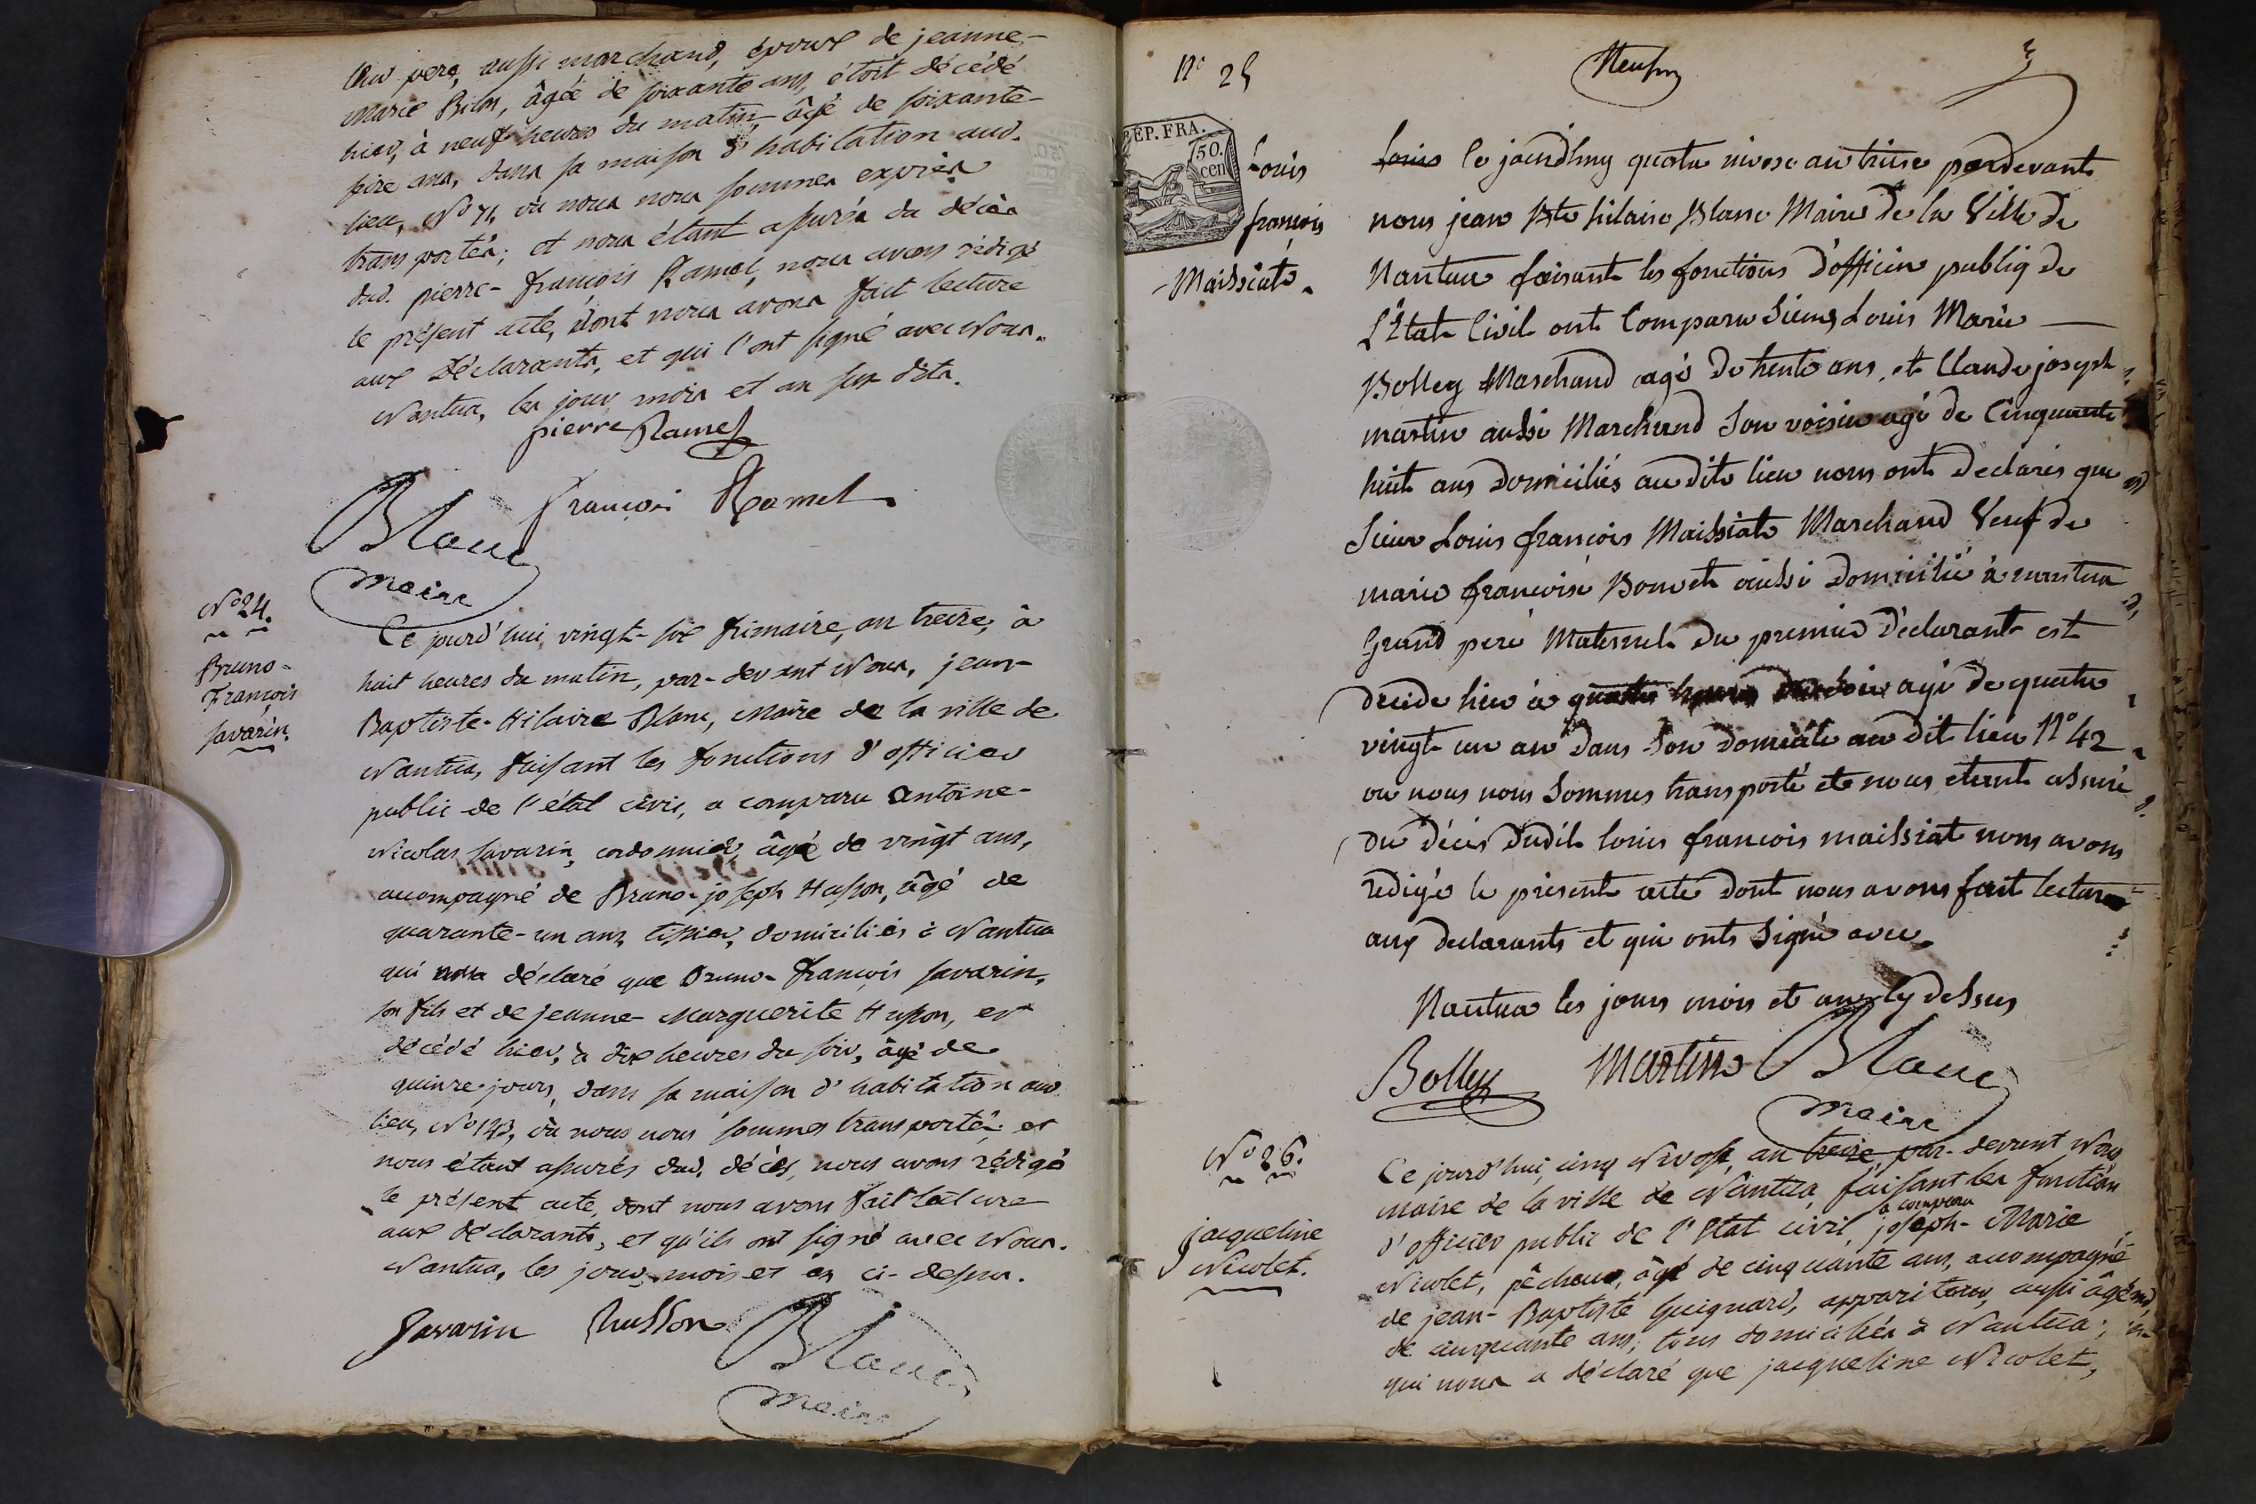 pere, aussi marchand, époux de jeanne-
Marie Bilon, âgée de soixante ans, étoit décédé
hier, à neuf heures du matin, âgé de soixante-
seize ans, dans sa maison d'habitation aud.
lieu, N° 71, où nous nous sommes exprès
transportés; et nous étant assurés du décès
dud. pierre-françois Ramel, nous avons rédigé
le présent acte, dont nous avons fait lecture
aux Déclarants, et qui l'ont signé avec Nous.
Nantua, les jour mois et an sus dits.
pierre Ramel
françois Ramel
Blanc
maire
N° 24.
Bruno-
François
Savarin.
Ce jourd'hui vingt-six frimaire, an treize, à
huit heures du matin, par-devant Nous, jean-
Baptiste-Hilaire Blanc, Maire de la ville de
Nantua, faisant les fonctions d'officier
public de l'état civil, a comparu Antoine-
Nicolas Savarin, cordonnier âgé de vingt ans,
accompagné de Bruno-joseph Husson, âgé de
quarante-un ans, tissier, domiciliés à Nantua
qui nous déclaré que Bruno-françois Savarin,
son fils et de jeanne-Marguerite Husson, est
décédé hier, à dix heures du soir, âgé de
quinze jours, dans sa maison d'habitation aud
lieu, N° 143, où nous nous sommes transporté; et
nous étant assurés dud. décès, nous avons rédigé
le présent acte, dont nous avons fait lecture
aux déclarants, et qu'ils ont signé avec Nous.
Nantua, les jour mois et an ci-dessus.
Savarin husson
Blanc
maire
N° 25
REP. FRA.
50.
cen
Louis
françois
Maissiat.
Ce jourdhuy quatre nivose an treize pardevant
nous jean Bte hilaire Blanc Maire de la Ville de
Nantua faisant les fonctions d'officier publiq de
L'Etat Civil ont Comparu Sieurs Louis Marie
Bolley Marchand agé de trente ans, et Claude joseph
martin aussi Marchand Son voisin agé de Cinquante
huit ans Domiciliés au dit lieu nous ont Declarés que
Sieur Louis françois Maissiat Marchand Veuf de
marie françoise Bouvet aussi Domicilié à nantua
Grand peré Maternel du premier Déclarant est
decede hier à quatre heures du soir agé de quatre
vingt un an dans Son domicile au dit lieu N° 42
ou nous nous Sommes transporté et nous etant assuré
du décès dudit louis françois maissiat nous avons
redigé le present acte dont nous avons fait lecture
aux declarants et qui ont Signé avec.
Nantua les jours mois et an cy dessus
Bolley Martin Blanc
maire
N° 26.
jacqueline
Nicolet.
Ce jourd'hui, cinq Nivose, an treize, par-devant Nous
Maire de la ville de Nantua, faisant les fonctions
a comparu
d'officier public de l'Etat civil, joseph-Marie
Nicolet, pêcheur, âgé de cinquante ans, accompagné
de jean-Baptiste Guignard, appariteur, aussi âgé
de cinquante ans, tous domiciliés à Nantua;
qui nous a déclaré que jacqueline Nicolet,